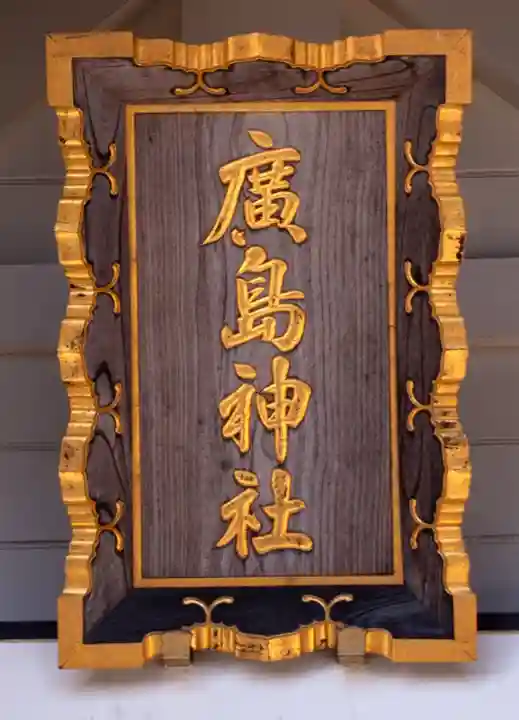 廣島神社